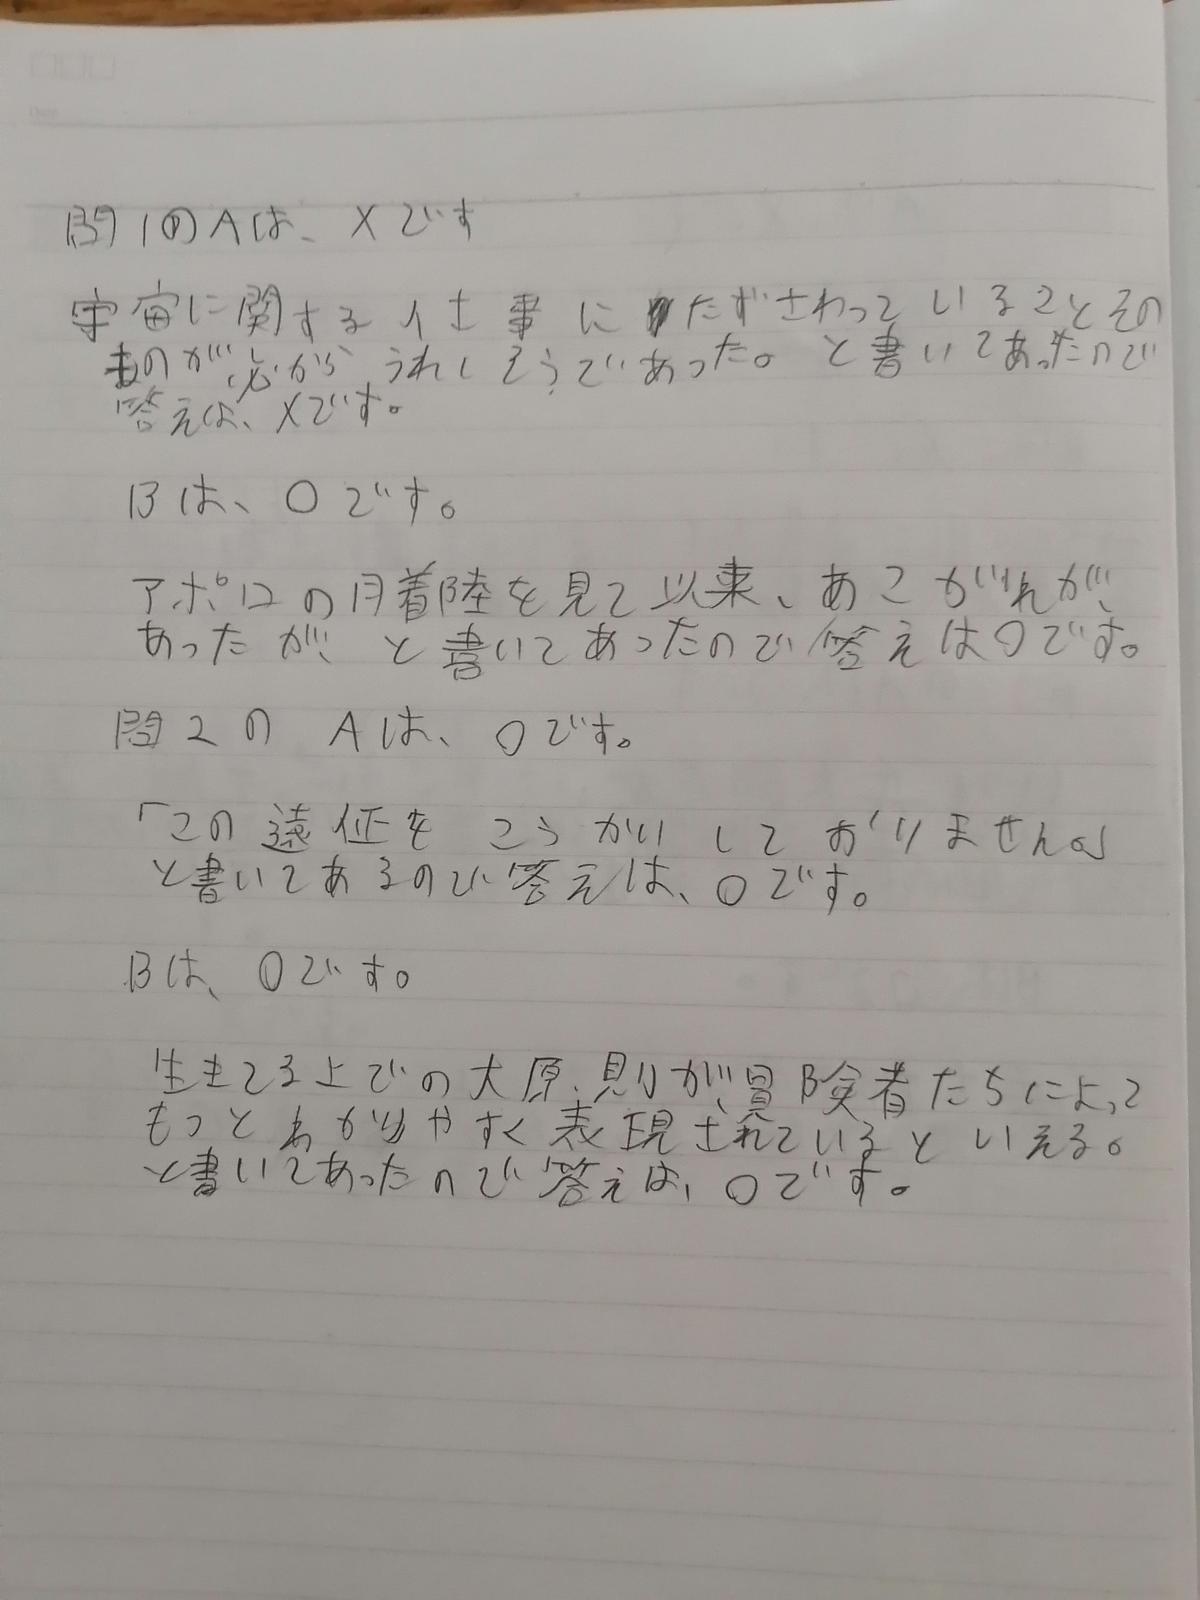 問1のAは、Xです
宇宙に関する仕事にたずさわっていることその
ものが心からうれしそうであった。と書いてあったので
答えは、Xです。
Bは、○です。
アポロの月着陸を見て以来、あこがれが、
あったが、と書いてあったので答えは○です。
問2の Aは、○です。
「この遠征をこうかいしておりません。」
と書いてあるので答えは、○です。
Bは、○です。
生きてる上での大原則が、冒険者たちによって
もっとわかりやすく表現されているといえる。
と書いてあったので答えは、○です。